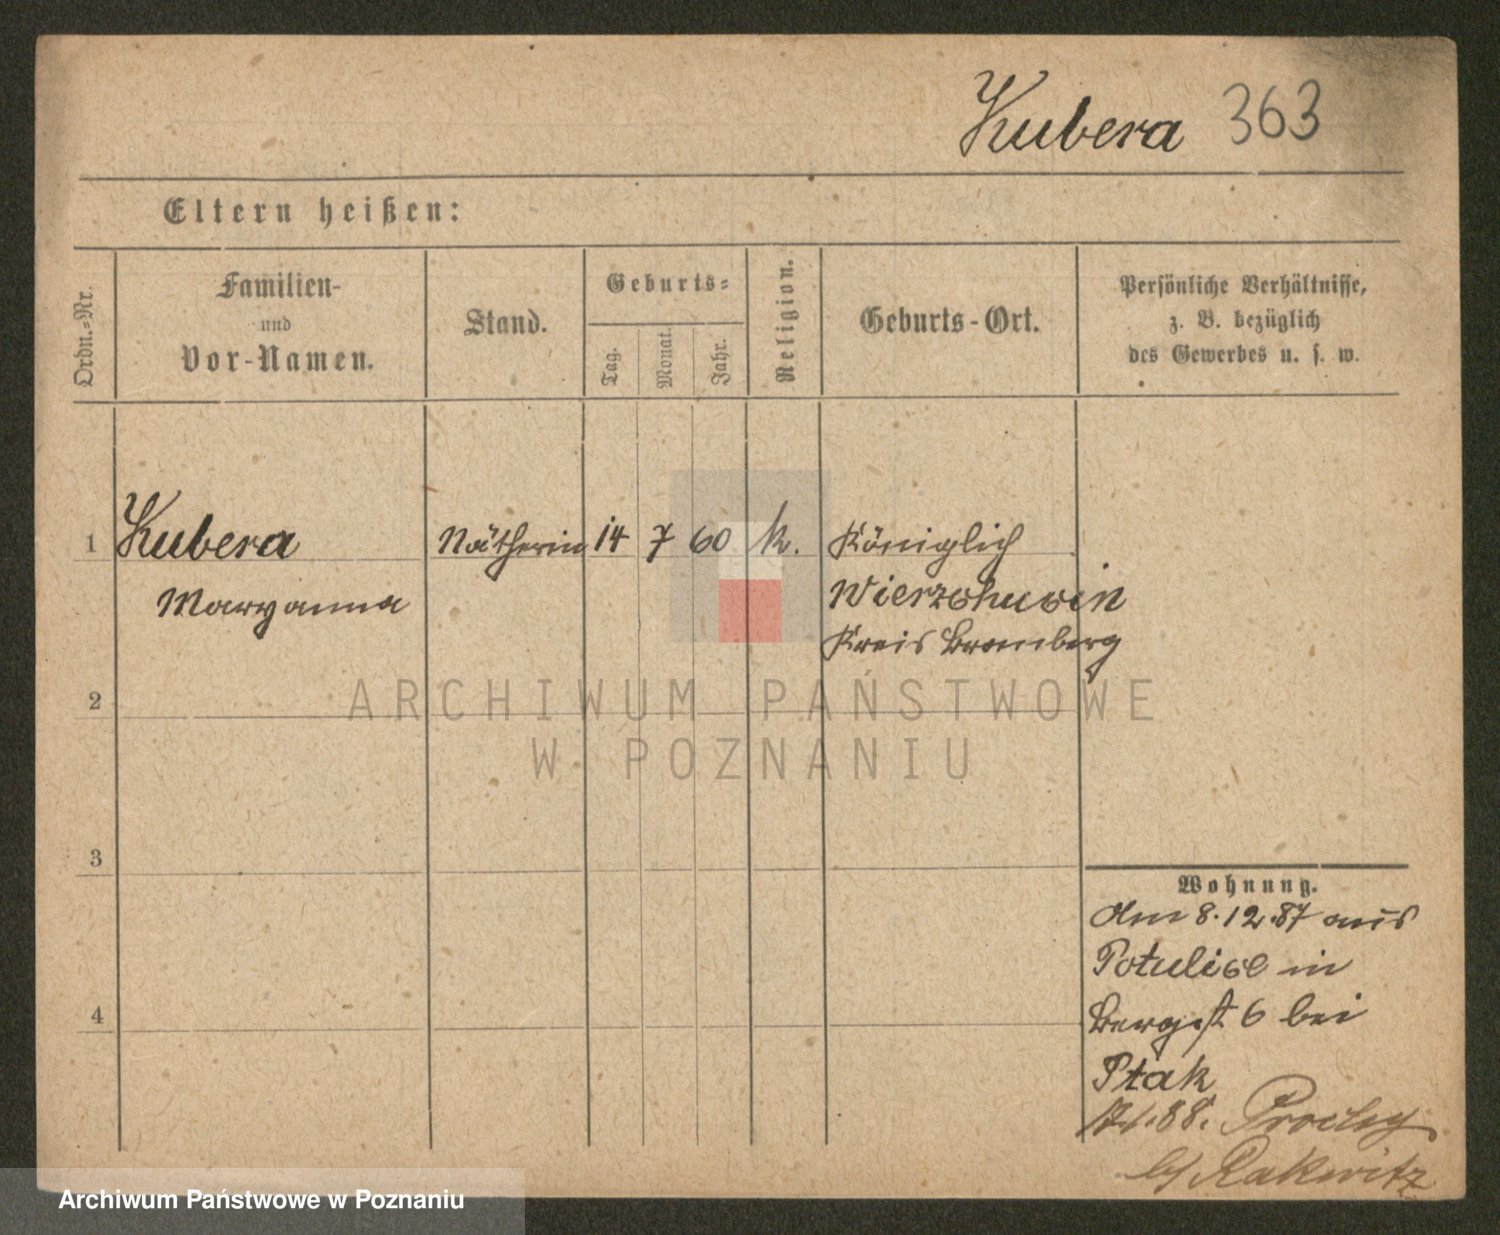 Kubera 363
Eltern heißen:
Ordn.-Nr.
Familien-
und
Vor-Namen.
Stand.
Geburts-
Tag.
Monat.
Jahr.
Religion.
Geburts-Ort.
Persönliche Verhältnisse,
z. B. bezüglich
des Gewerbes u. s. w.
1 Kubera Nätherin 14 7 60 k. Königlich
Maryanna Wierzchucin
Kreis Bromberg
2
ARCHIWUM PAŃSTWOWE
W POZNANIU
3
Wohnung.
Am 8.12.87 aus
Potulice in
Bergst 6 bei
4
Ptak
88.
b/ Rakwitz
Archiwum Państwowe w Poznaniu